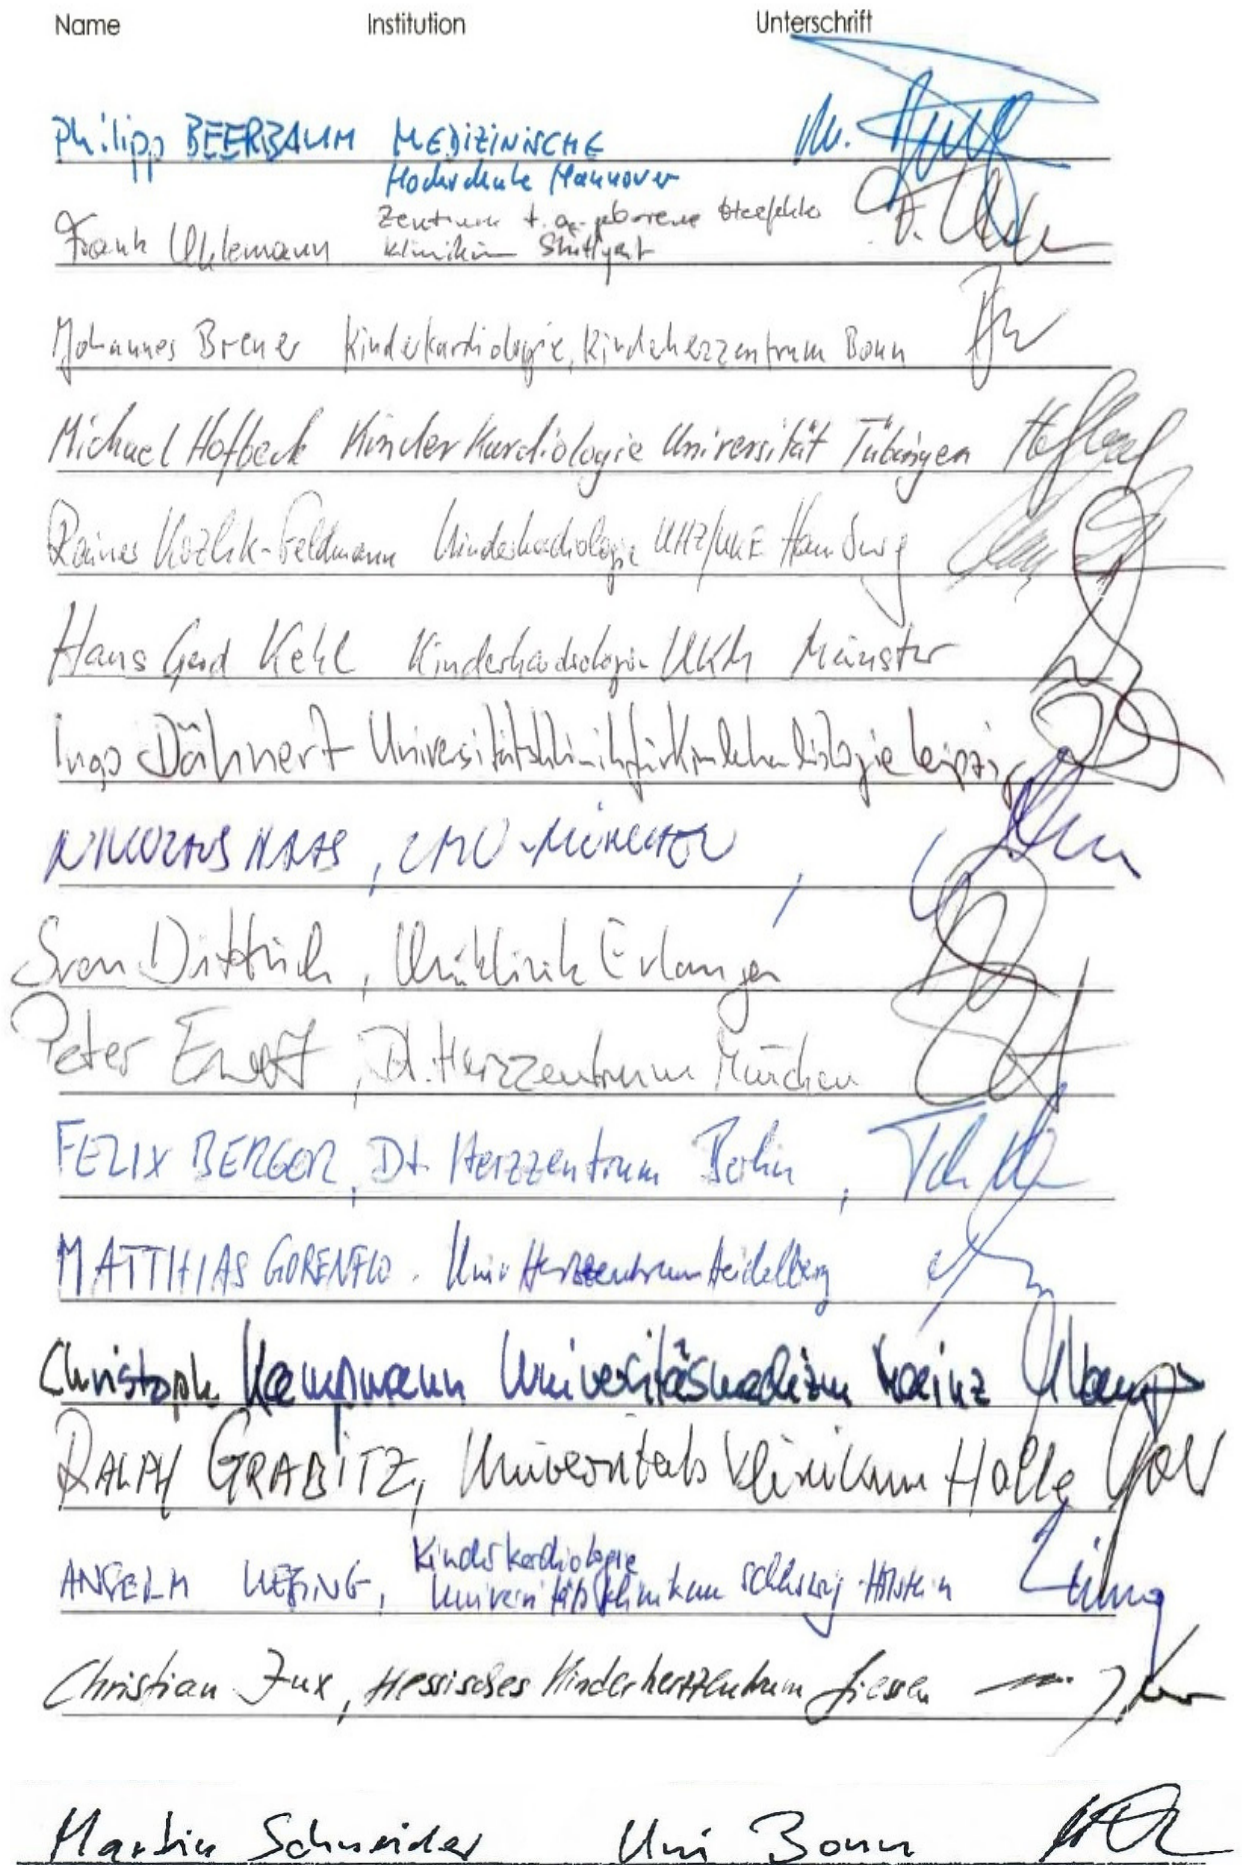 Name Institution Unterschrift
Philipp BEERBAUM MEDIZINISCHE
Hochschule Hannover
Zentrum f. angeborene Herzfehler
Frank Uhlemann Klinikum Stuttgart
Johannes Breuer Kinderkardiologie, Kinderherzzentrum Bonn
Michael Hofbeck Kinderkardiologie Universität Tübingen
Rainer Kozlik-Feldmann Kinderkardiologie UHZ/UKE Hamburg
Hans Gerd Kehl Kinderkardiologie UKM Münster
Ingo Dähnert Universitätsklinik für Kinderkardiologie Leipzig
NIKOLAUS HAAS, LMU-MÜNCHEN,
Sven Dittrich, Uniklinik Erlangen
Peter Ewert, Dt. Herzzentrum München
FELIX BERGER, Dt. Herzzentrum Berlin,
MATTHIAS GORENFLO. Univ Herzzentrum Heidelberg
Christoph Kampmann Universitäsmedizin Mainz
RALPH GRABITZ, Universitätsklinikum Halle
Kinderkardiologie
ANSELM UEBING, Universitätsklinikum Schleswig-Holstein
Christian Jux, Hessisches Kinderherzzentrum Giessen
Martin Schneider Uni Bonn